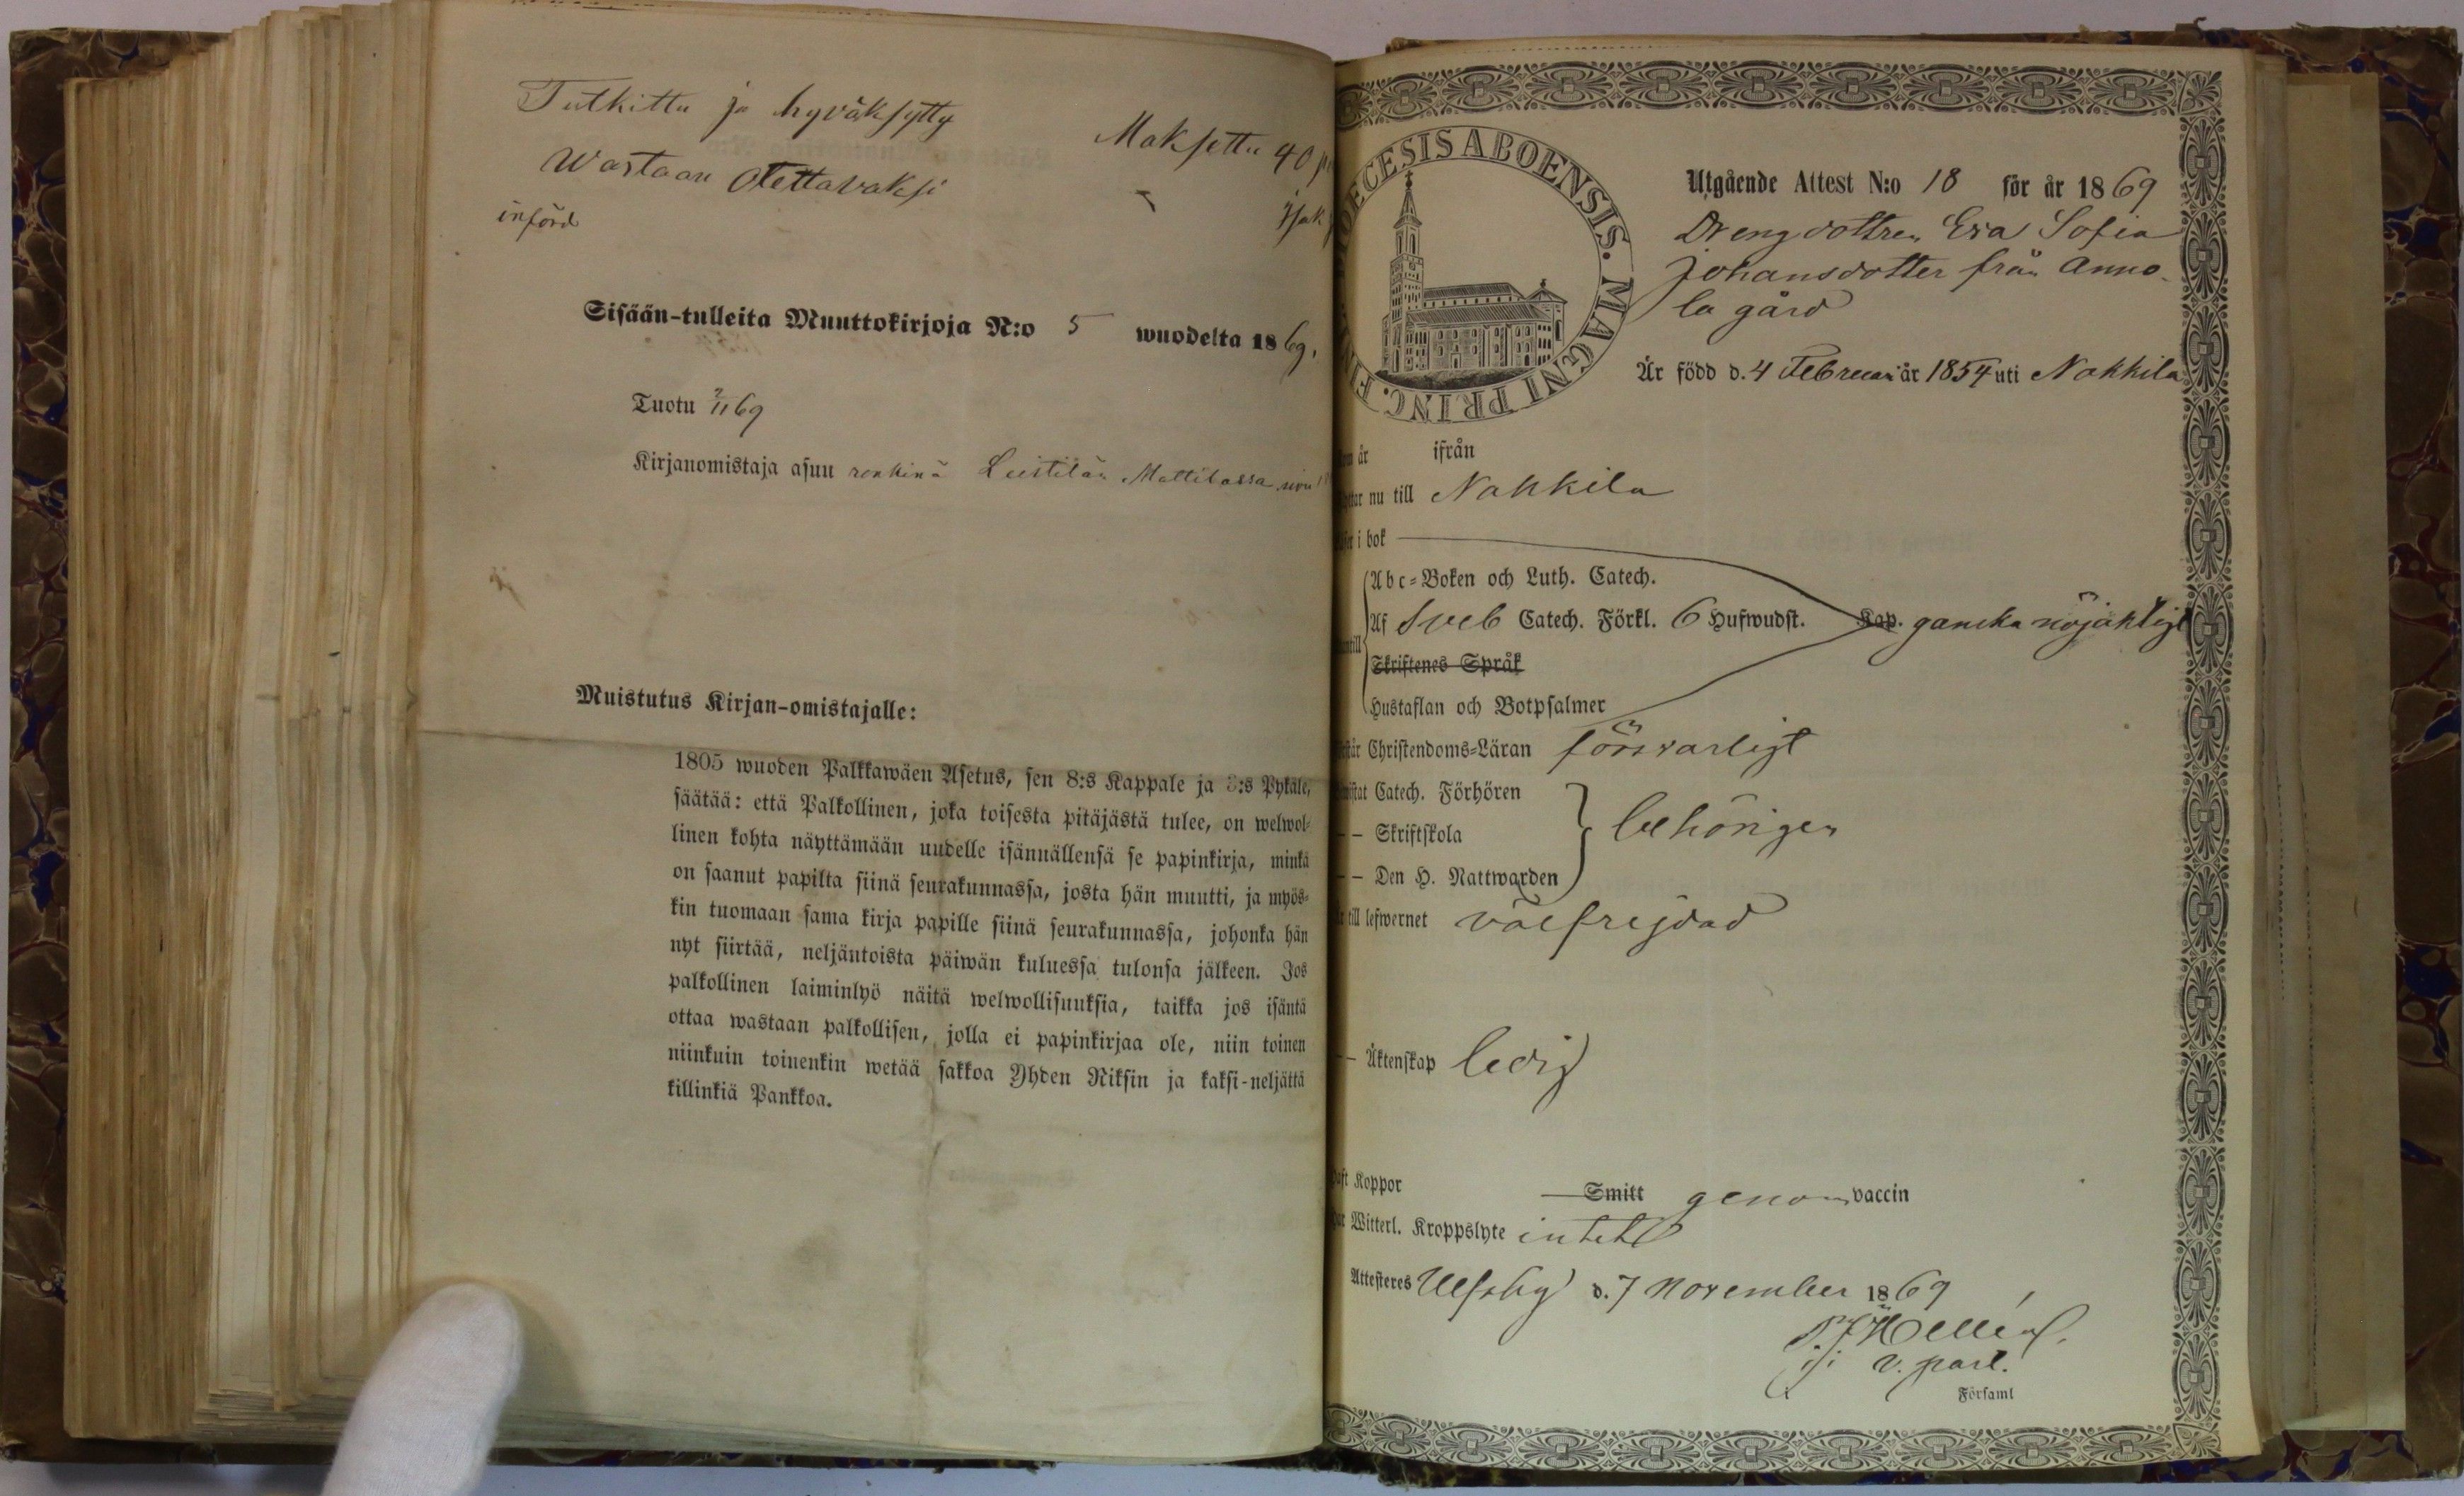 Tutkittu ja hyväksytty
Maksettu 40
Wastaan Otettavaksi
införd
Sisään-tulleita Muuttokirjoja N:o 5 wuodelta 1869.
Tuotu 7/11 69
Kirjanomistaja asuu renkinä Leistilän Mattilassa sivu
Muistutus Kirjan-omistajalle:
1805 wuoden Palkkawäen Asetus, sen 8:s Kappale ja 3:s Pykäle,
säätää: että Palkollinen, joka toisesta pitäjästä tulee, on welwol-
linen kohta näyttämään uudelle isännällensä se papinkirja, minkä
on saanut papilta siinä seurakunnassa, josta hän muutti, ja myös-
kin tuomaan sama kirja papille siinä seurakunnassa, johonka hän
nyt siirtää, neljäntoista päiwän kuluessa tulonsa jälkeen. Jos
palkollinen laiminlyö näitä welwollisuuksia, taikka jos isäntä
ottaa wastaan palkollisen, jolla ei papinkirjaa ole, niin toinen
niinkuin toinenkin wetää sakkoa Yhden Riksin ja kaksi-neljättä
killinkiä Pankkoa.
DIOECESIS ABOENSIS. MAGNI PRINC.
Utgående Attest N:o 18 för år 1869
Drengdottren Eva Sofia
Johansdotter från Anno-
la gård
Är född d. 4 Februari år 1854 uti Nakkila
är ifrån
nu till Nakkila
i bok
Abc-Boken och Luth. Catech.
Af Sveb Catech. Förkl. 6 Hufwudst. Kap. ganska nöjaktigt
Skriftenes Språk
Hustaflan och Botpsalmer
Christendoms-Läran försvarligt
Catech. Förhören
— Skriftskola behörigen
— Den H. Nattwarden
till lefwernet välfrejdad
— Äktenskap ledig
Koppor Smitt genom vaccin
Witterl. Kroppslyte intet
Attesteres Ulfsby d. 7 November 1869
v. past.
Församl